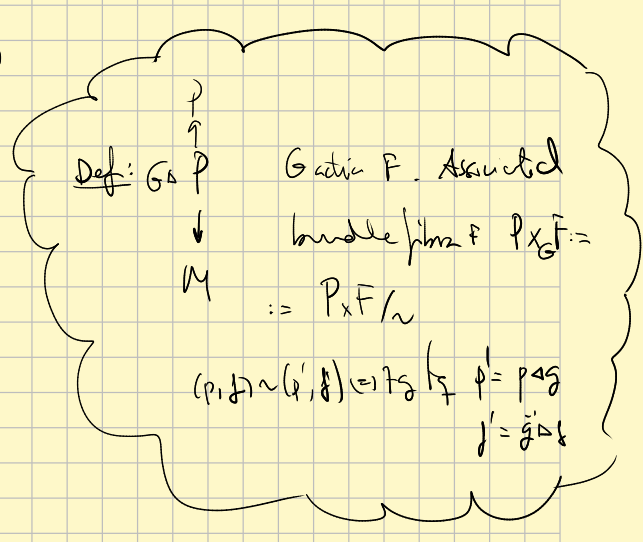 P
↑
Def: G ▹ P G actúa F. Associated
↓ bundle fibra F P×_G F :=
M := P×F/~
(p,f) ~ (p',f') ⟺ ∃g tq p' = p ◃ g
f' = g⁻¹ ▹ f